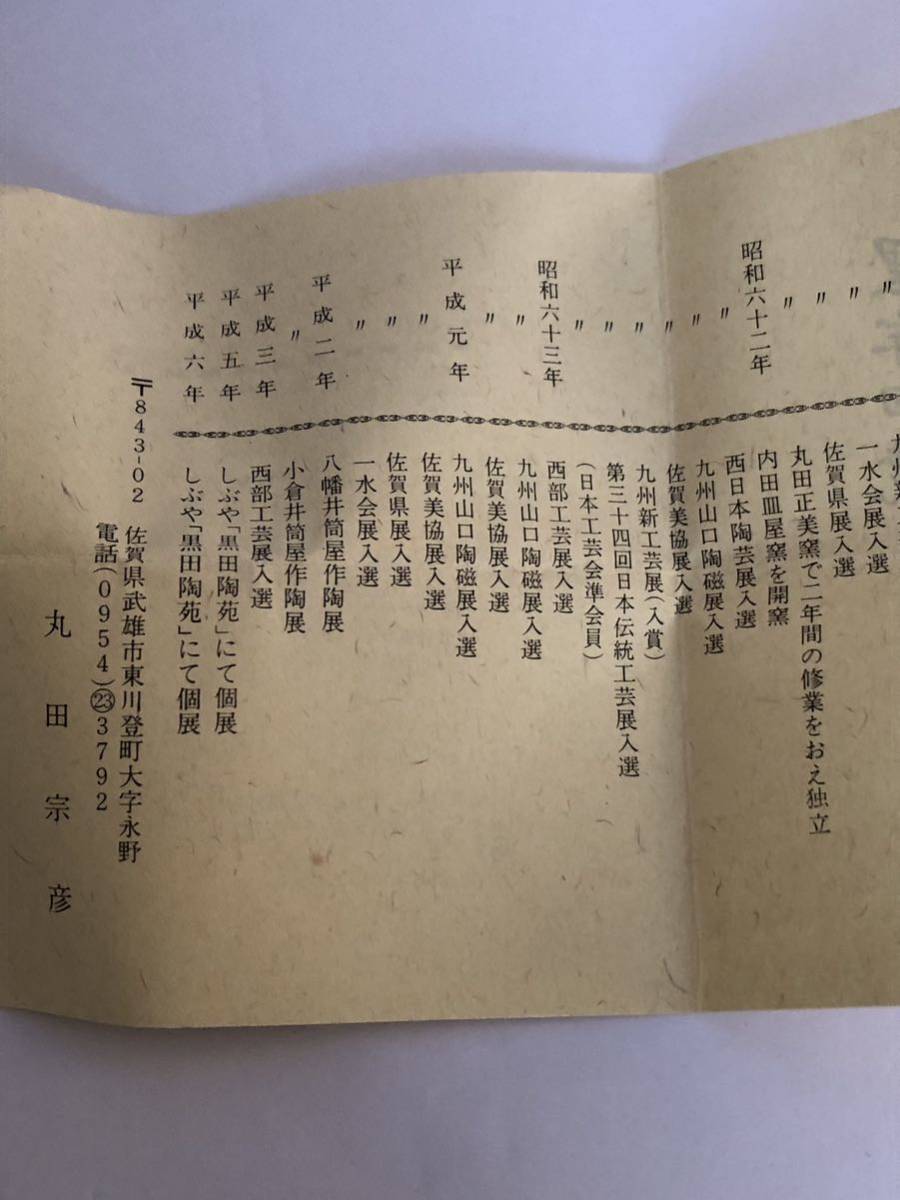 〃 九州新
〃 一水会展入選
〃 佐賀県展入選
〃 丸田正美窯で二年間の修業をおえ独立
昭和六十二年 内田皿屋窯を開窯
〃 西日本陶芸展入選
〃 九州山口陶磁展入選
〃 佐賀美協展入選
〃 九州新工芸展(入賞)
〃 第三十四回日本伝統工芸展入選
〃 (日本工芸会準会員)
昭和六十三年 西部工芸展入選
〃 九州山口陶磁展入選
〃 佐賀美協展入選
平成元年 九州山口陶磁展入選
〃 佐賀美協展入選
〃 佐賀県展入選
〃 一水会展入選
平成二年 八幡井筒屋作陶展
〃 小倉井筒屋作陶展
平成三年 西部工芸展入選
平成五年 しぶや「黒田陶苑」にて個展
平成六年 しぶや「黒田陶苑」にて個展
〒843-02 佐賀県武雄市東川登町大字永野
電話(0954)㉓3792
丸田宗彦